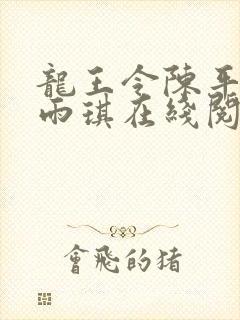 龍王令陳平
雨琪在綫閱
會飛的猪